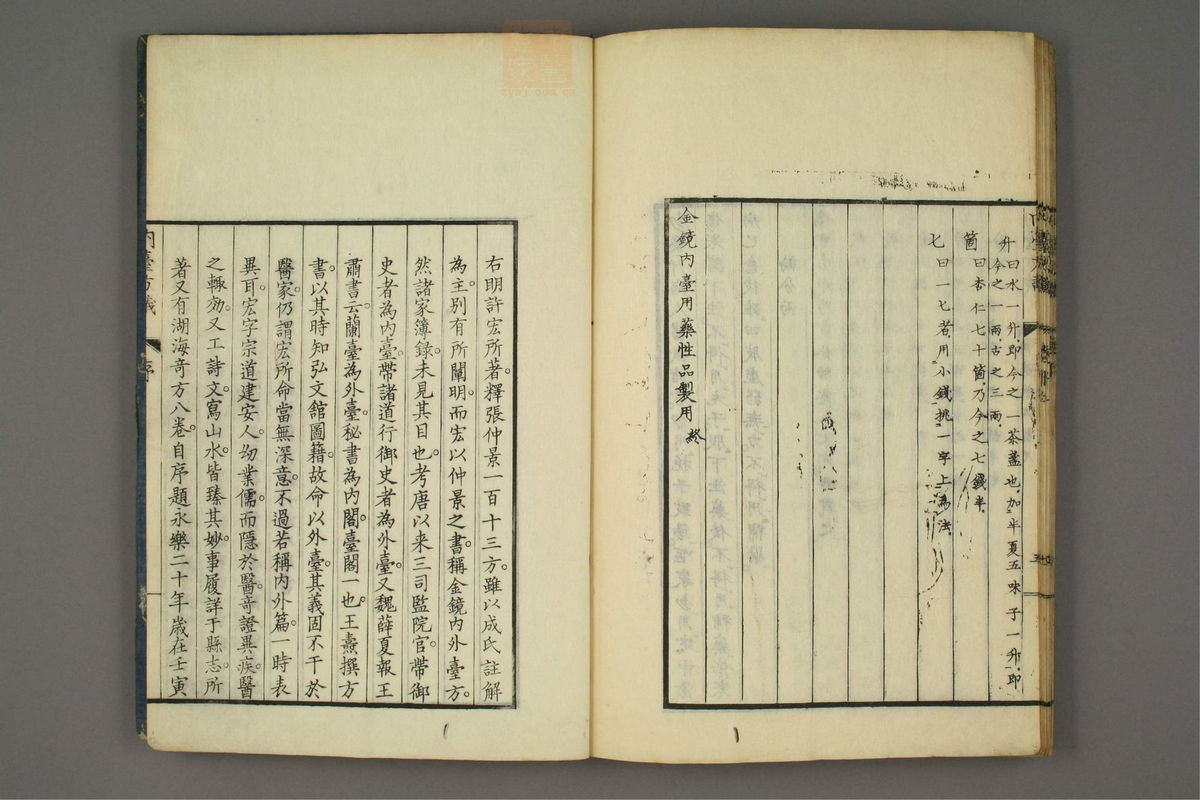 升曰水一升，即今之一茶盞也，加半夏五味子一升，即
今之一兩，古之三兩，
箇曰杏仁七十箇，乃今之七錢半，
匕曰一匕者用小錢挑一字上為法，
金鏡內臺用藥性品製用終
右明許宏所著。釋張仲景一百十三方。雖以成氏註解
為主。別有所闡明。而宏以仲景之書。稱金鏡內外臺方。
然諸家簿錄。未見其目也。考唐以来三司監院官。帶御
史者為內臺。帶諸道行御史者為外臺。又魏薛夏報王
肅書云。蘭臺為外臺。秘書為內閣。臺閣一也。王燾撰方
書。以其時知弘文館圖籍。故命以外臺。其義固不干於
醫家。仍謂宏所命當無深意。不過若稱內外篇。一時表
異耳。宏字宗道建安人。幼業儒。而隱於醫。奇證異疾。醫
之輙効。又工詩文。寫山水。皆臻其妙。事履詳于縣志。所
著又有湖海奇方八卷。自序題永樂二十年歲在壬寅
內臺方議
序